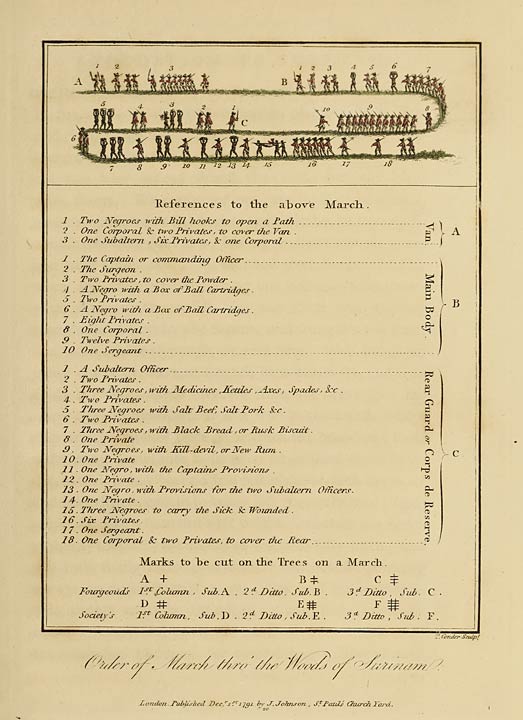 1 2 3
A
1 2 3 4 5 6 7
B
5 4 3 2 1
C
10 9 8
6
7 8 9 10 11 12 13 14 15 16 17 18
References to the above March.
1 . Two Negroes with Bill hooks to open a Path
2 . One Corporal & two Privates, to cover the Van .
3 . One Subaltern, Six Privates, & one Corporal
Van
A
1 . The Captain or commanding Officer
2 . The Surgeon .
3 . Two Privates, to cover the Powder .
4 . A Negro with a Box of Ball Cartridges .
5 . Two Privates .
6 . A Negro with a Box of Ball Cartridges .
7 . Eight Privates .
8 . One Corporal .
9 . Twelve Privates .
10 One Sergeant
Main Body
B
1 . A Subaltern Officer
2 . Two Privates .
3 . Three Negroes, with Medicines, Kettles, Axes, Spades, &c .
4 . Two Privates .
5 . Three Negroes with Salt Beef, Salt Pork &c .
6 . Two Privates .
7 . Three Negroes, with Black Bread, or Rusk Biscuit .
8 . One Private
9 . Two Negroes, with Kill-devil, or New Rum .
10 . One Private
11 . One Negro, with the Captains Provisions .
12 . One Private .
13 . One Negro, with Provisions for the two Subaltern Officers .
14 . One Private .
15 . Three Negroes to carry the Sick & Wounded .
16 . Six Privates
17 . One Sergeant
18 . One Corporal & two Privates, to cover the Rear
Rear Guard or Corps de Reserve.
C
Marks to be cut on the Trees on a March.
A B C
Fourgeoud's 1st Column, Sub. A . 2d Ditto, Sub. B . 3d Ditto, Sub. C .
D E F
Society's 1st Column, Sub. D . 2d Ditto, Sub. E . 3d Ditto, Sub. F .
Conder Sculpt
Order of March thro' the Woods of Surinam.
London. Published Decr. 1st 1791 by J. Johnson, St. Paul's Church Yard.
20